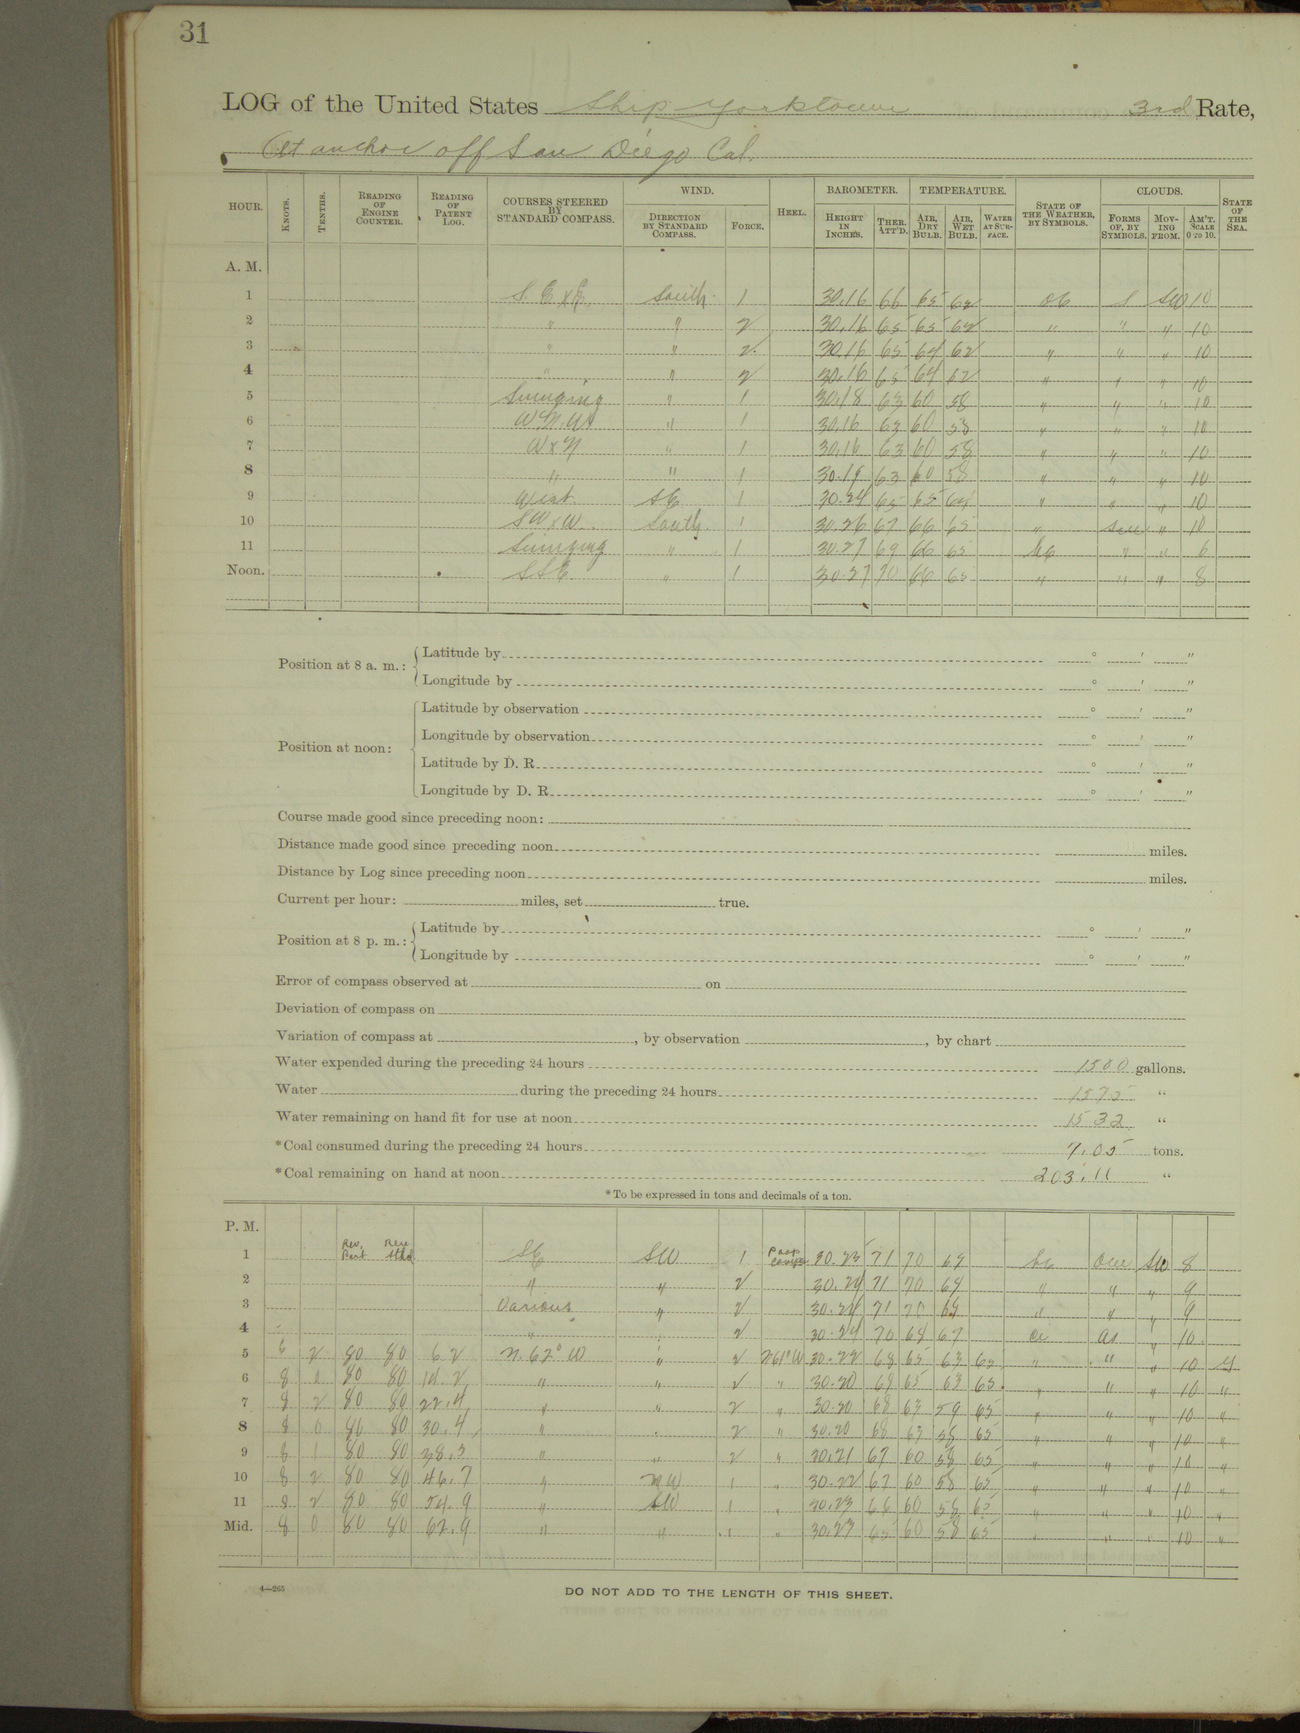 31
LOG of the United States Ship Yorktown 3rd Rate,
At anchor off San Diego Cal.
HOUR. KNOTS. TENTHS. READING OF ENGINE COUNTER. READING OF PATENT LOG. COURSES STEERED BY STANDARD COMPASS. WIND. DIRECTION BY STANDARD COMPASS. FORCE. HEEL. BAROMETER. HEIGHT IN INCHES. THER. ATT'D. TEMPERATURE. AIR, DRY BULB. AIR, WET BULB. WATER AT SURFACE. STATE OF THE WEATHER, BY SYMBOLS. CLOUDS. FORMS OF, BY SYMBOLS. MOVING FROM. AM'T. SCALE 0 TO 10. STATE OF THE SEA.
A. M.
1 S.E x E. South 1 30.16 66 65 62 oc S SW 10
2 " " 2 30.16 65 65 62 " " " 10
3 " " 2 30.16 65 64 62 " " " 10
4 " " 2 30.16 65 64 62 " " " 10
5 Swinging " 1 30.18 63 60 58 " " " 10
6 W.N.W " 1 30.16 63 60 58 " " " 10
7 W x N " 1 30.16 63 60 58 " " " 10
8 " " 1 30.19 63 60 58 " " " 10
9 West SE 1 30.24 65 65 64 " " " 10
10 SW x W. South 1 30.26 67 66 65 " " 10
11 Swinging " 1 30.27 69 66 65 bc " " 6
Noon. SSE " 1 30.27 70 66 65 " " " 8
Position at 8 a. m.: Latitude by ° ′ ″
Longitude by ° ′ ″
Position at noon: Latitude by observation ° ′ ″
Longitude by observation ° ′ ″
Latitude by D. R. ° ′ ″
Longitude by D. R. ° ′ ″
Course made good since preceding noon:
Distance made good since preceding noon miles.
Distance by Log since preceding noon miles.
Current per hour: miles, set true.
Position at 8 p. m.: Latitude by ° ′ ″
Longitude by ° ′ ″
Error of compass observed at on
Deviation of compass on
Variation of compass at , by observation , by chart
Water expended during the preceding 24 hours 1500 gallons.
Water during the preceding 24 hours 1575 "
Water remaining on hand fit for use at noon 1532 "
*Coal consumed during the preceding 24 hours 7.05 tons.
*Coal remaining on hand at noon 203.11 "
*To be expressed in tons and decimals of a ton.
P. M.
1 Rev. Port Rev Stbd SE SW 1 30.25 71 70 69 bc SW 8
2 " " 2 30.24 71 70 69 " " " 9
3 Various " 2 30.24 71 70 69 " " " 9
4 " " 2 30.24 70 68 67 " 10
5 8 2 80 80 6.2 N. 62° W " 2 30.22 68 65 63 65 " " " 10
6 8 0 80 80 14.2 " " 2 " 30.20 68 65 63 65 " " " 10 "
7 8 2 80 80 22.4 " " 2 " 30.20 68 63 59 65 " " " 10 "
8 8 0 80 80 30.4 " " 2 " 30.20 68 63 58 65 " " " 10 "
9 8 1 80 80 38.5 " " 2 " 30.21 67 60 58 65 " " " 10 "
10 8 2 80 80 46.7 " NW 1 " 30.22 67 60 58 65 " " " 10 "
11 8 2 80 80 54.9 " SW 1 " 30.23 66 60 58 65 " " " 10 "
Mid. 8 0 80 80 62.9 " " 1 " 30.23 65 60 58 65 " " " 10 "
4—265
DO NOT ADD TO THE LENGTH OF THIS SHEET.